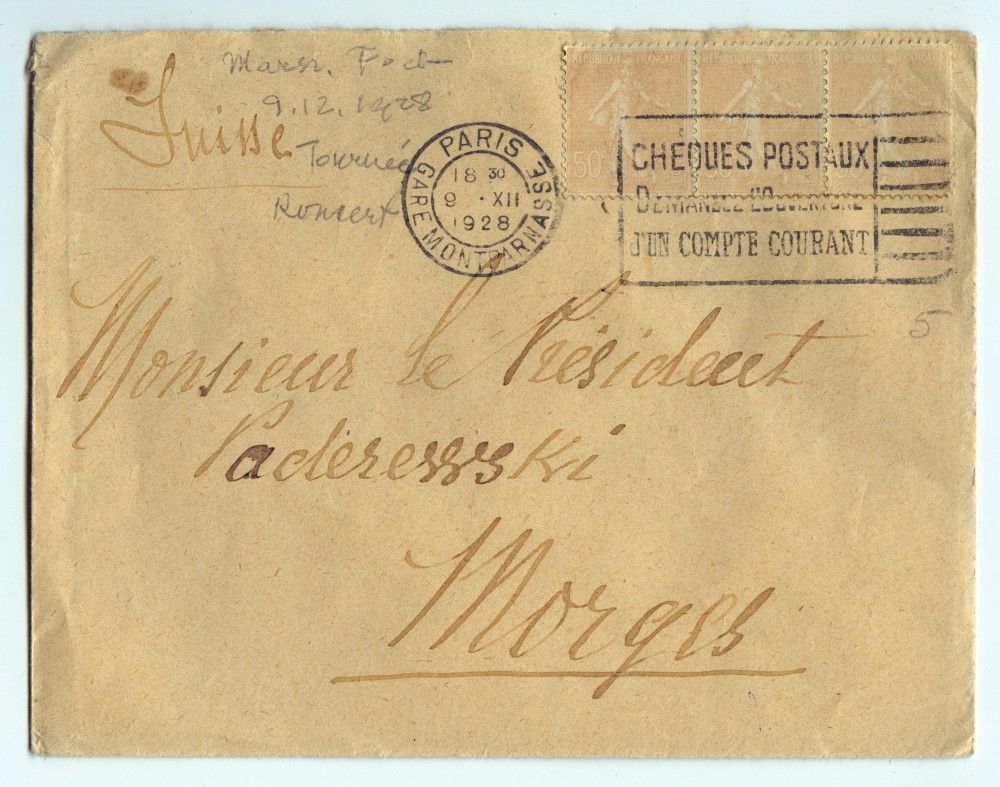 Marsz. Foch
9.12.1928
Suisse
Tournée
Koncert
PARIS
GARE MONTPARNASSE
18 30
9 · XII
1928
REPUBLIQUE FRANÇAISE
REPUBLIQUE FRANÇAISE
REPUBLIQUE FRANÇAISE
50
CHEQUES POSTAUX
DEMANDEZ L'OUVERTURE
D'UN COMPTE COURANT
5
Monsieur le Président
Paderewski
Morges